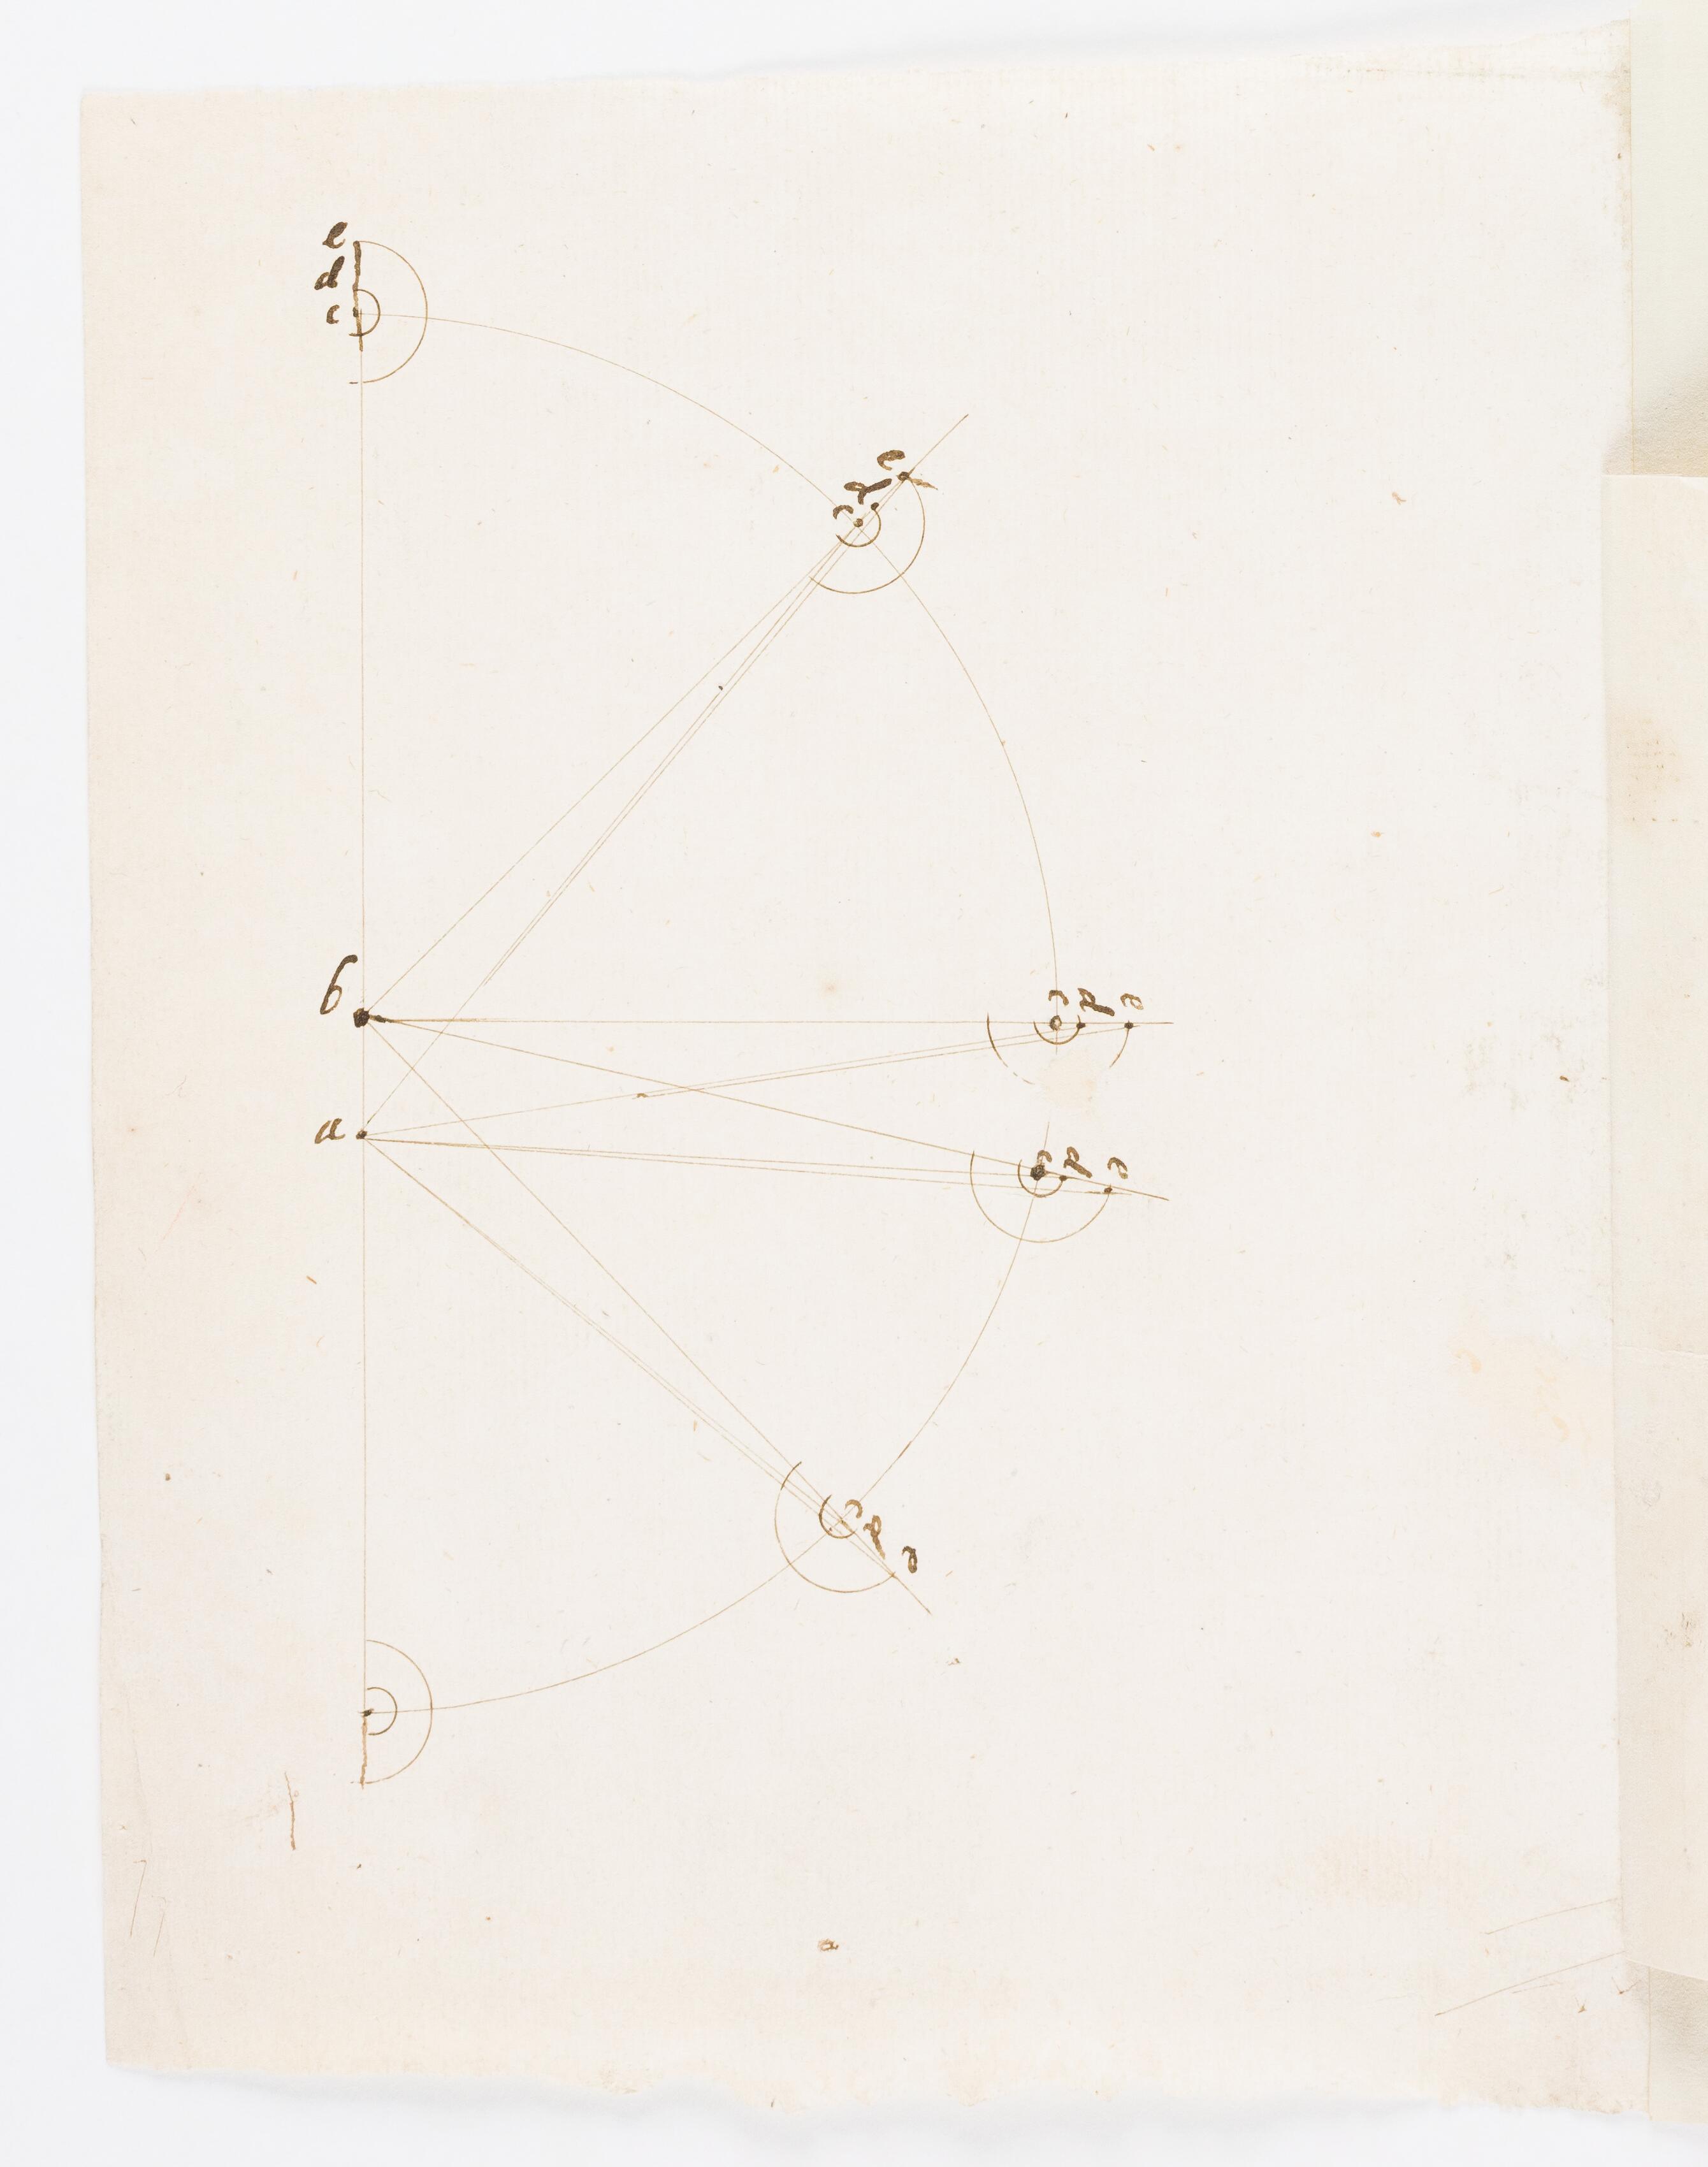 e
d
c
e
d
c
b
c d e
a
c d e
c
d
e